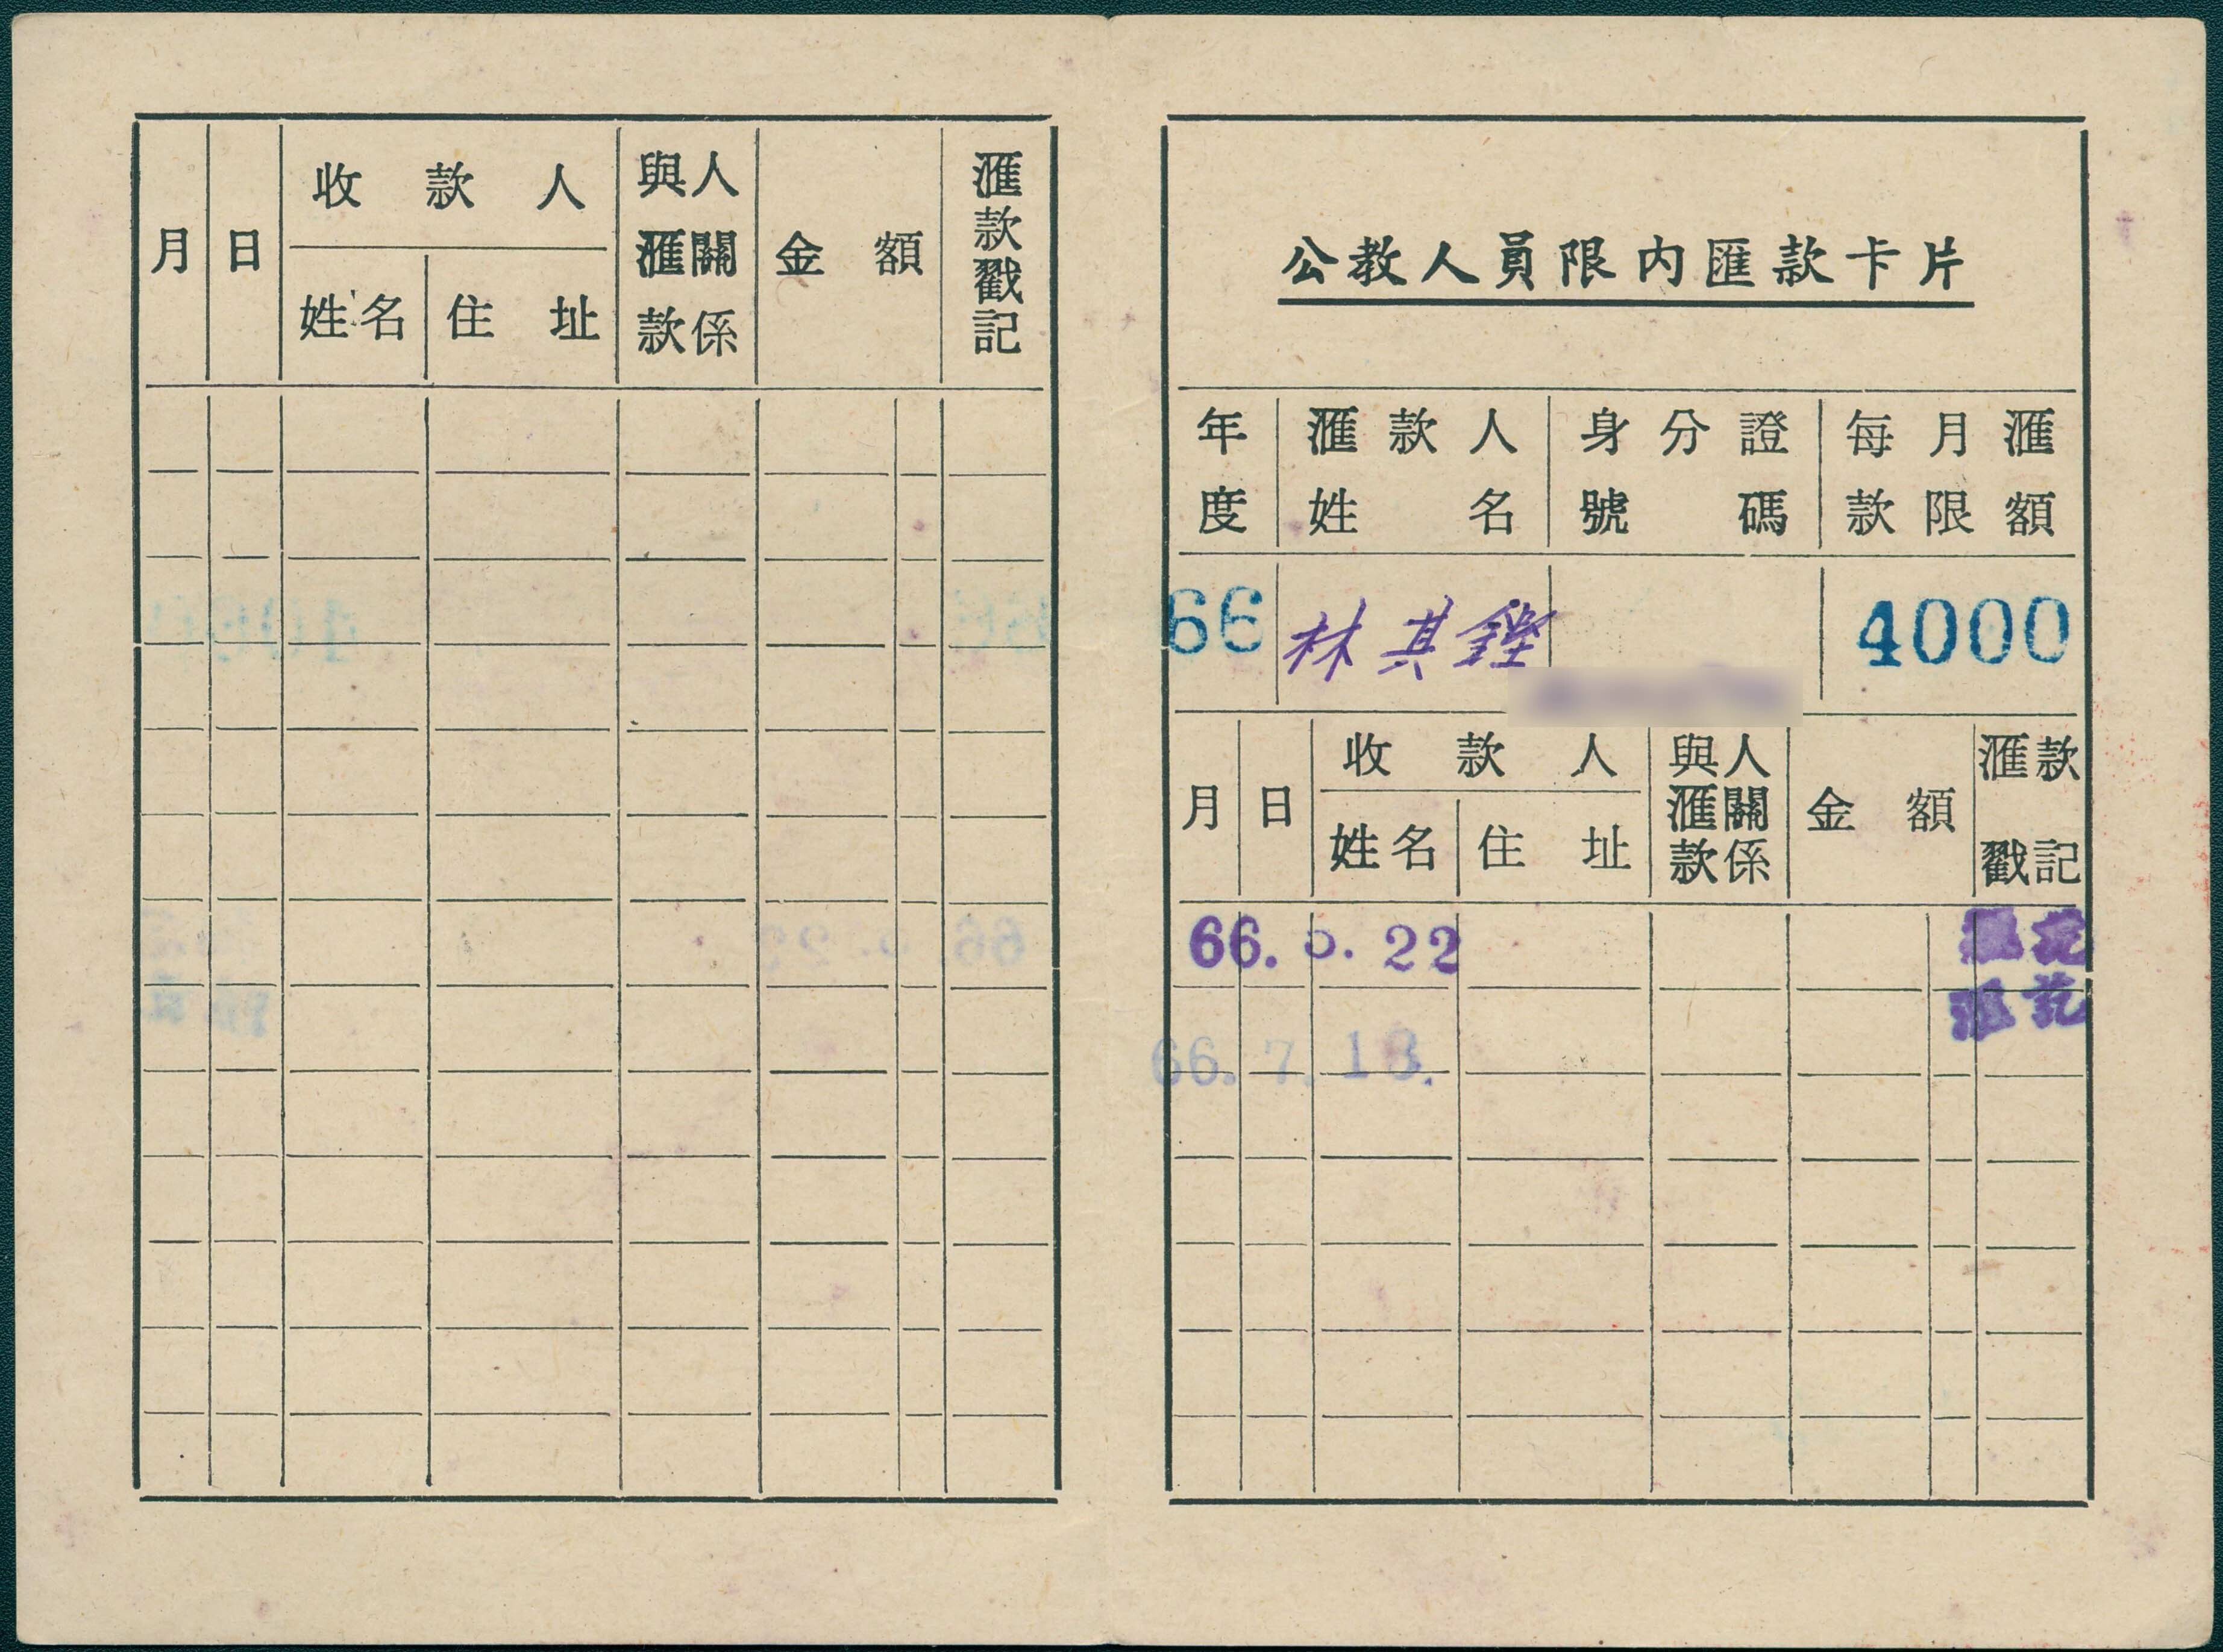 公教人員限內匯款卡片
年度 滙款人姓名 身分證號碼 每月滙款限額
66 林其鏗 4000
月 日 收款人 姓名 住址 與滙款人關係 金額 滙款戳記
66. 5. 22 滙訖
滙訖
66. 7. 13.
月 日 收款人 姓名 住址 與滙款人關係 金額 滙款戳記